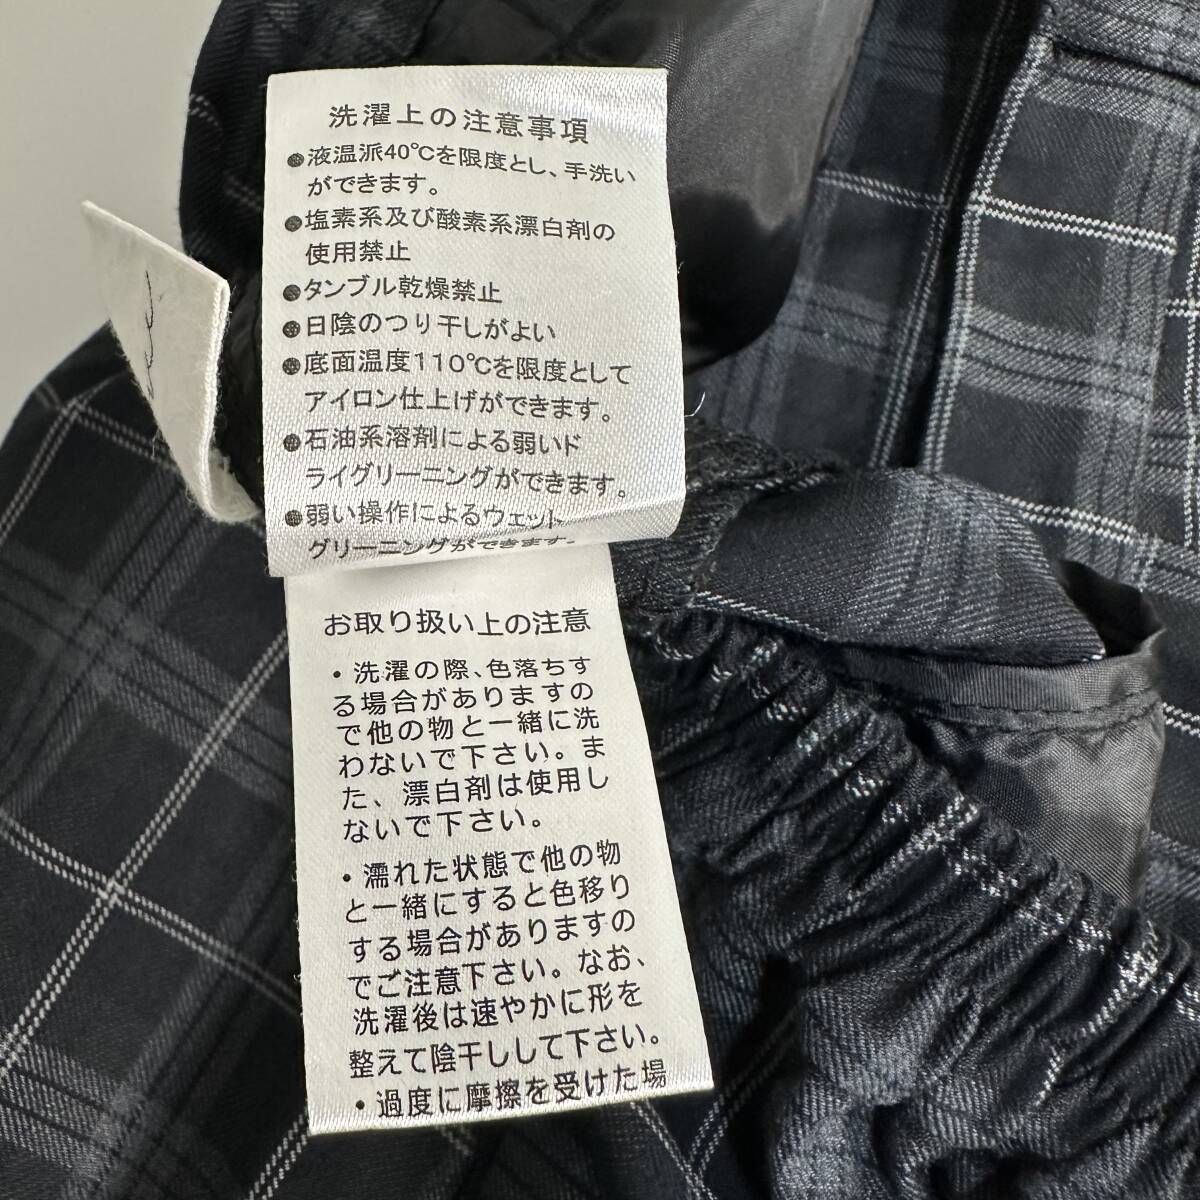 洗濯上の注意事項
●液温派40℃を限度とし、手洗い
ができます。
●塩素系及び酸素系漂白剤の
使用禁止
●タンブル乾燥禁止
●日陰のつり干しがよい
●底面温度110℃を限度として
アイロン仕上げができます。
●石油系溶剤による弱いド
ライグリーニングができます。
●弱い操作によるウェット
グリーニングができます。
お取り扱い上の注意
・洗濯の際、色落ちす
る場合がありますの
で他の物と一緒に洗
わないで下さい。ま
た、漂白剤は使用し
ないで下さい。
・濡れた状態で他の物
と一緒にすると色移り
する場合がありますの
でご注意下さい。なお、
洗濯後は速やかに形を
整えて陰干しして下さい。
・過度に摩擦を受けた場